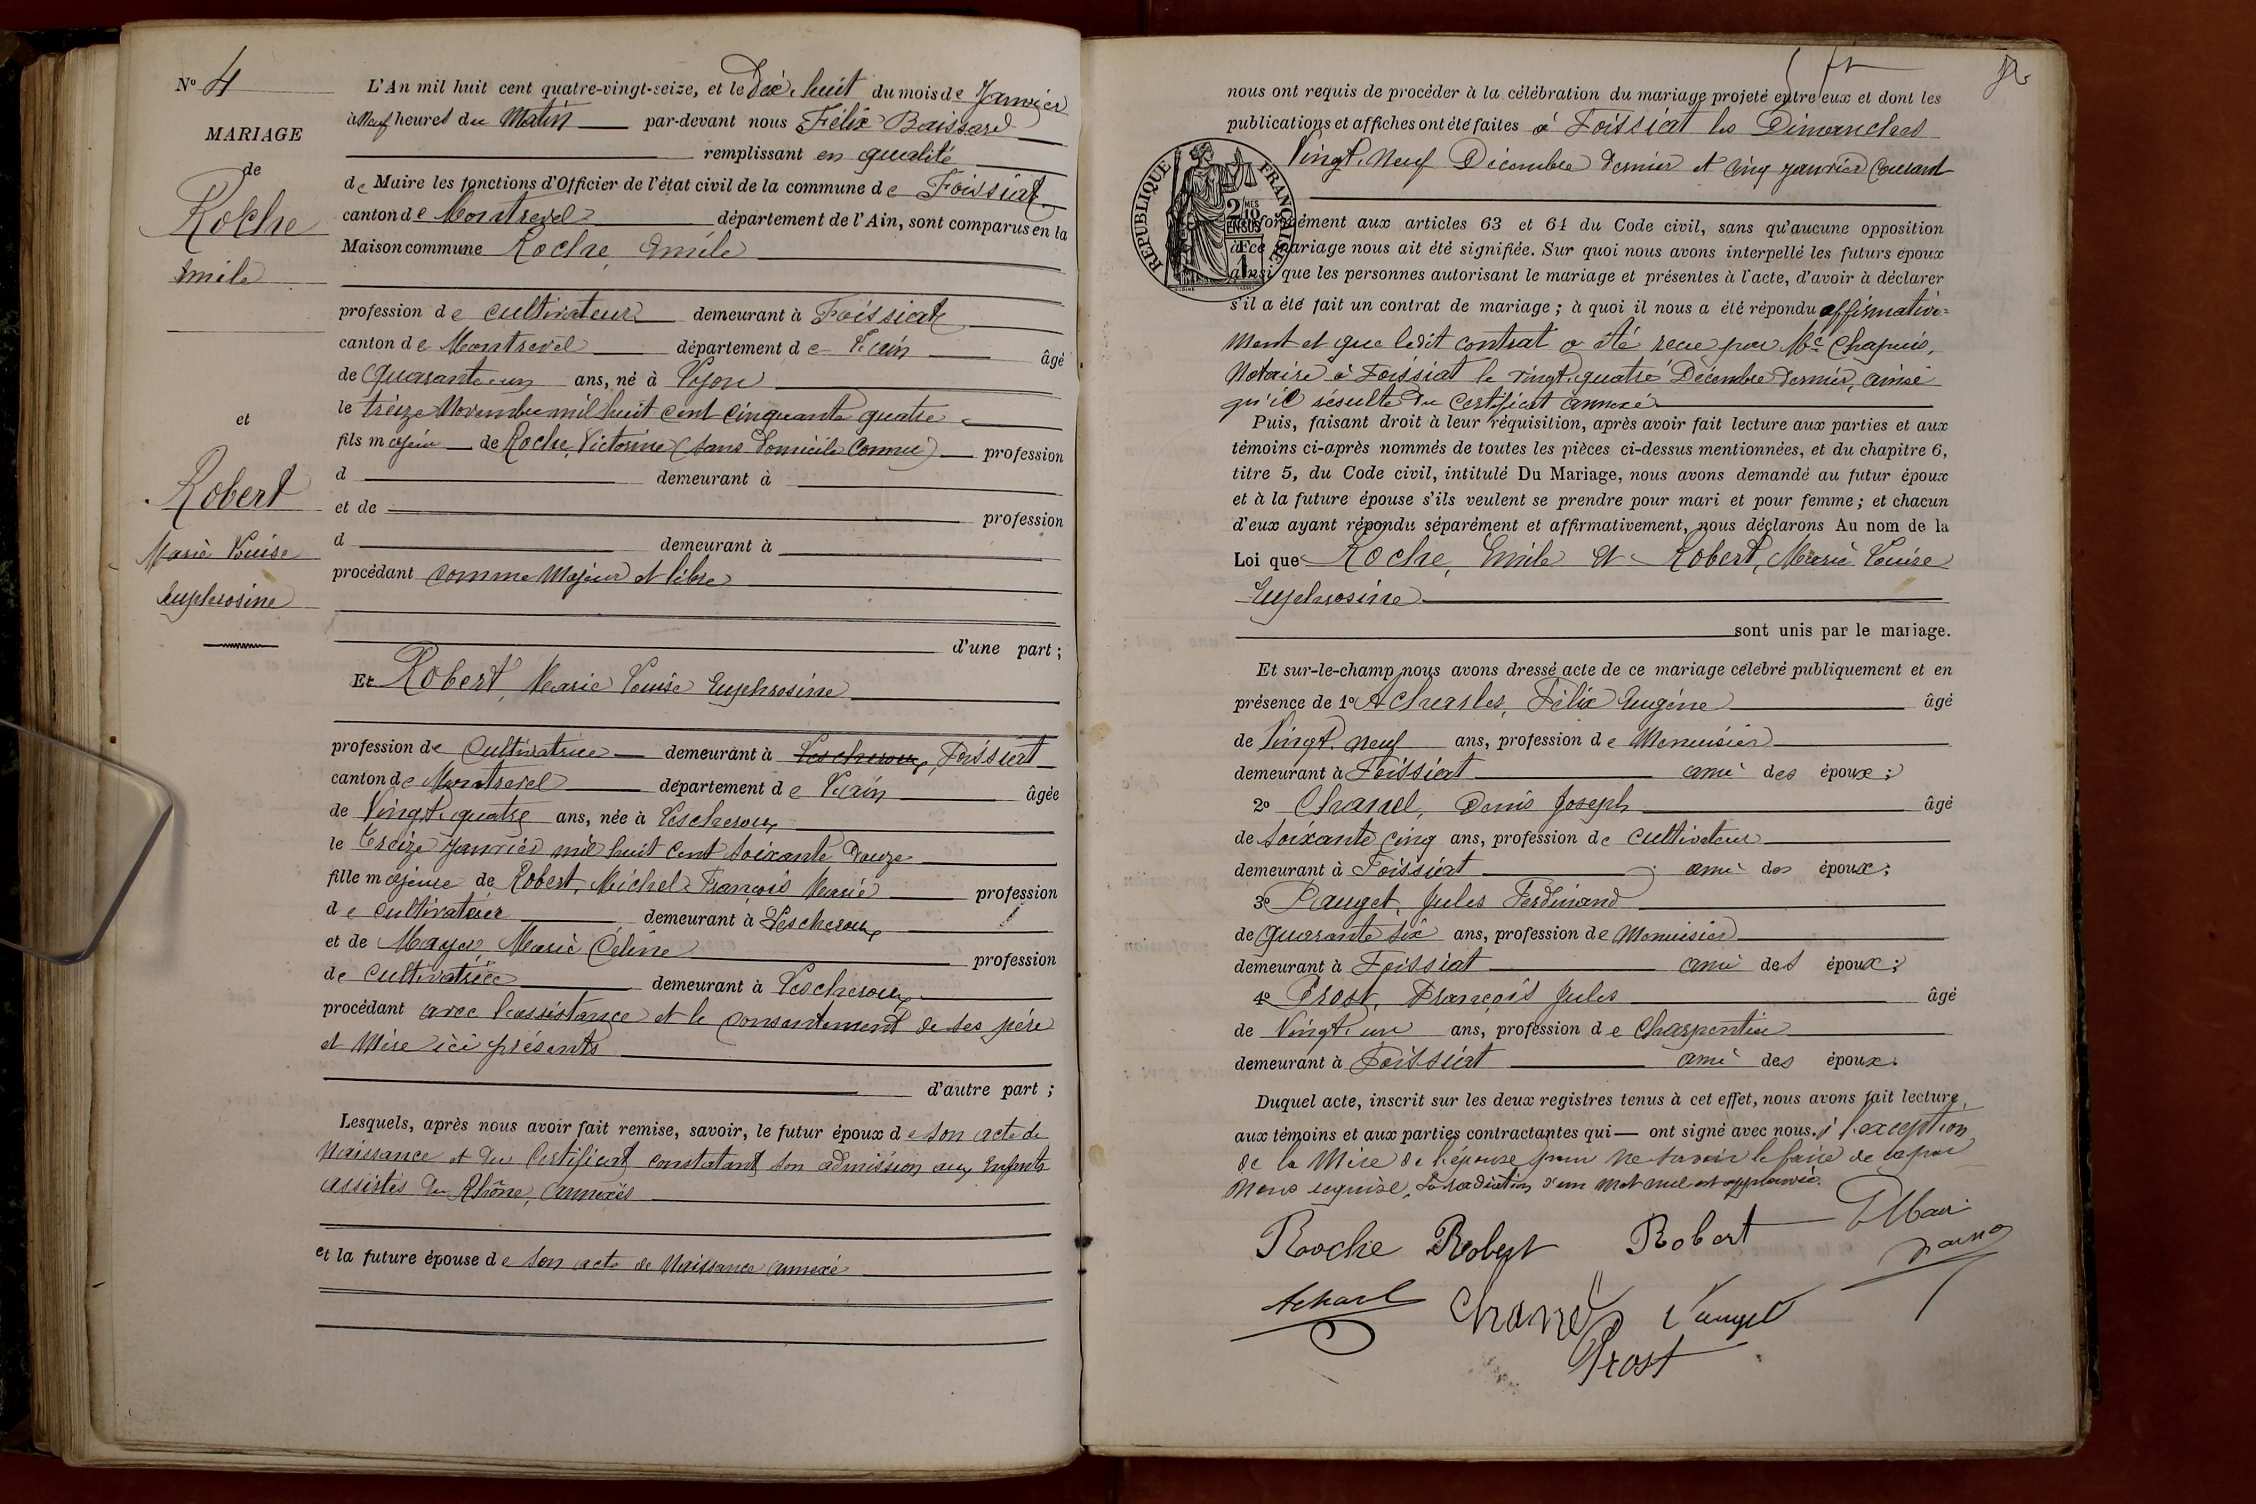 Nº 4
MARIAGE
de
Roche
Emile
et
Robert
Marie Louise
Euphrosine
L'An mil huit cent quatre-vingt-seize, et le Dix-huit du mois de Janvier
à Neuf heures du Matin par-devant nous Félix Baissard
remplissant en qualité
de Maire les fonctions d'Officier de l'état civil de la commune de Foissiat
canton de Montrevel département de l'Ain, sont comparus en la
Maison commune Roche, Emile
profession de cultivateur demeurant à Foissiat
canton de Montrevel département de l'ain âgé
de quarante-un ans, né à Lyon
le treize Novembre mil huit cent cinquante quatre
fils majeur de Roche, Victorine (sans Domicile Connu) profession
d demeurant à
et de profession
d demeurant à
procédant comme Majeur et libre
d'une part ;
Et Robert, Marie Louise Euphrosine
profession de Cultivatrice demeurant à Lescheroux, Foissiat
canton de Montrevel département de l'ain âgée
de Vingt-quatre ans, née à Lescheroux
le Treize Janvier mil huit cent soixante douze
fille majeure de Robert, Michel François Marie profession
de cultivateur demeurant à Lescheroux
et de Maya, Marie Céline profession
de Cultivatrice demeurant à Lescheroux
procédant avec l'assistance et le consentement de ses père
et Mère ici présents
d'autre part ;
Lesquels, après nous avoir fait remise, savoir, le futur époux de son acte de
Naissance et du Certificat constatant son admission aux Enfants
assistés du Rhône, annexés
et la future épouse de son acte de Naissance annexé
nous ont requis de procéder à la célébration du mariage projeté entre eux et dont les
publications et affiches ont été faites à Foissiat les Dimanches
Vingt-Neuf Décembre dernier et cinq janvier courant
RÉPUBLIQUE FRANÇAISE
2/10 MES
EN SUS
1
conformément aux articles 63 et 64 du Code civil, sans qu'aucune opposition
à ce mariage nous ait été signifiée. Sur quoi nous avons interpellé les futurs époux
ainsi que les personnes autorisant le mariage et présentes à l'acte, d'avoir à déclarer
s'il a été fait un contrat de mariage ; à quoi il nous a été répondu affirmative=
ment et que ledit contrat a été reçu par Me Chapuis,
Notaire à Foissiat le vingt-quatre Décembre dernier, ainsi
qu'il résulte du certificat annexé
Puis, faisant droit à leur réquisition, après avoir fait lecture aux parties et aux
témoins ci-après nommés de toutes les pièces ci-dessus mentionnées, et du chapitre 6,
titre 5, du Code civil, intitulé Du Mariage, nous avons demandé au futur époux
et à la future épouse s'ils veulent se prendre pour mari et pour femme ; et chacun
d'eux ayant répondu séparément et affirmativement, nous déclarons Au nom de la
Loi que Roche, Emile et Robert, Marie Louise
Euphrosine
sont unis par le mariage.
Et sur-le-champ nous avons dressé acte de ce mariage célébré publiquement et en
présence de 1º Acharles, Félix Eugène âgé
de Vingt-neuf ans, profession de Menuisier
demeurant à Foissiat ami des époux ;
2º Chanel, Denis Joseph âgé
de soixante cinq ans, profession de cultivateur
demeurant à Foissiat ami des époux ;
3º Pauget, Jules Ferdinand
de quarante six ans, profession de Menuisier
demeurant à Foissiat ami des époux ;
4º Prost, François Jules âgé
de Vingt-un ans, profession de Charpentier
demeurant à Foissiat ami des époux.
Duquel acte, inscrit sur les deux registres tenus à cet effet, nous avons fait lecture
aux témoins et aux parties contractantes qui ont signé avec nous, à l'exception
de la Mère de l'épouse pour ne savoir le faire de ce par
Nous requise. La radiation d'un mot nul est approuvée.
Roche Robert Robert
Acharl Chanel Pauget
Prost